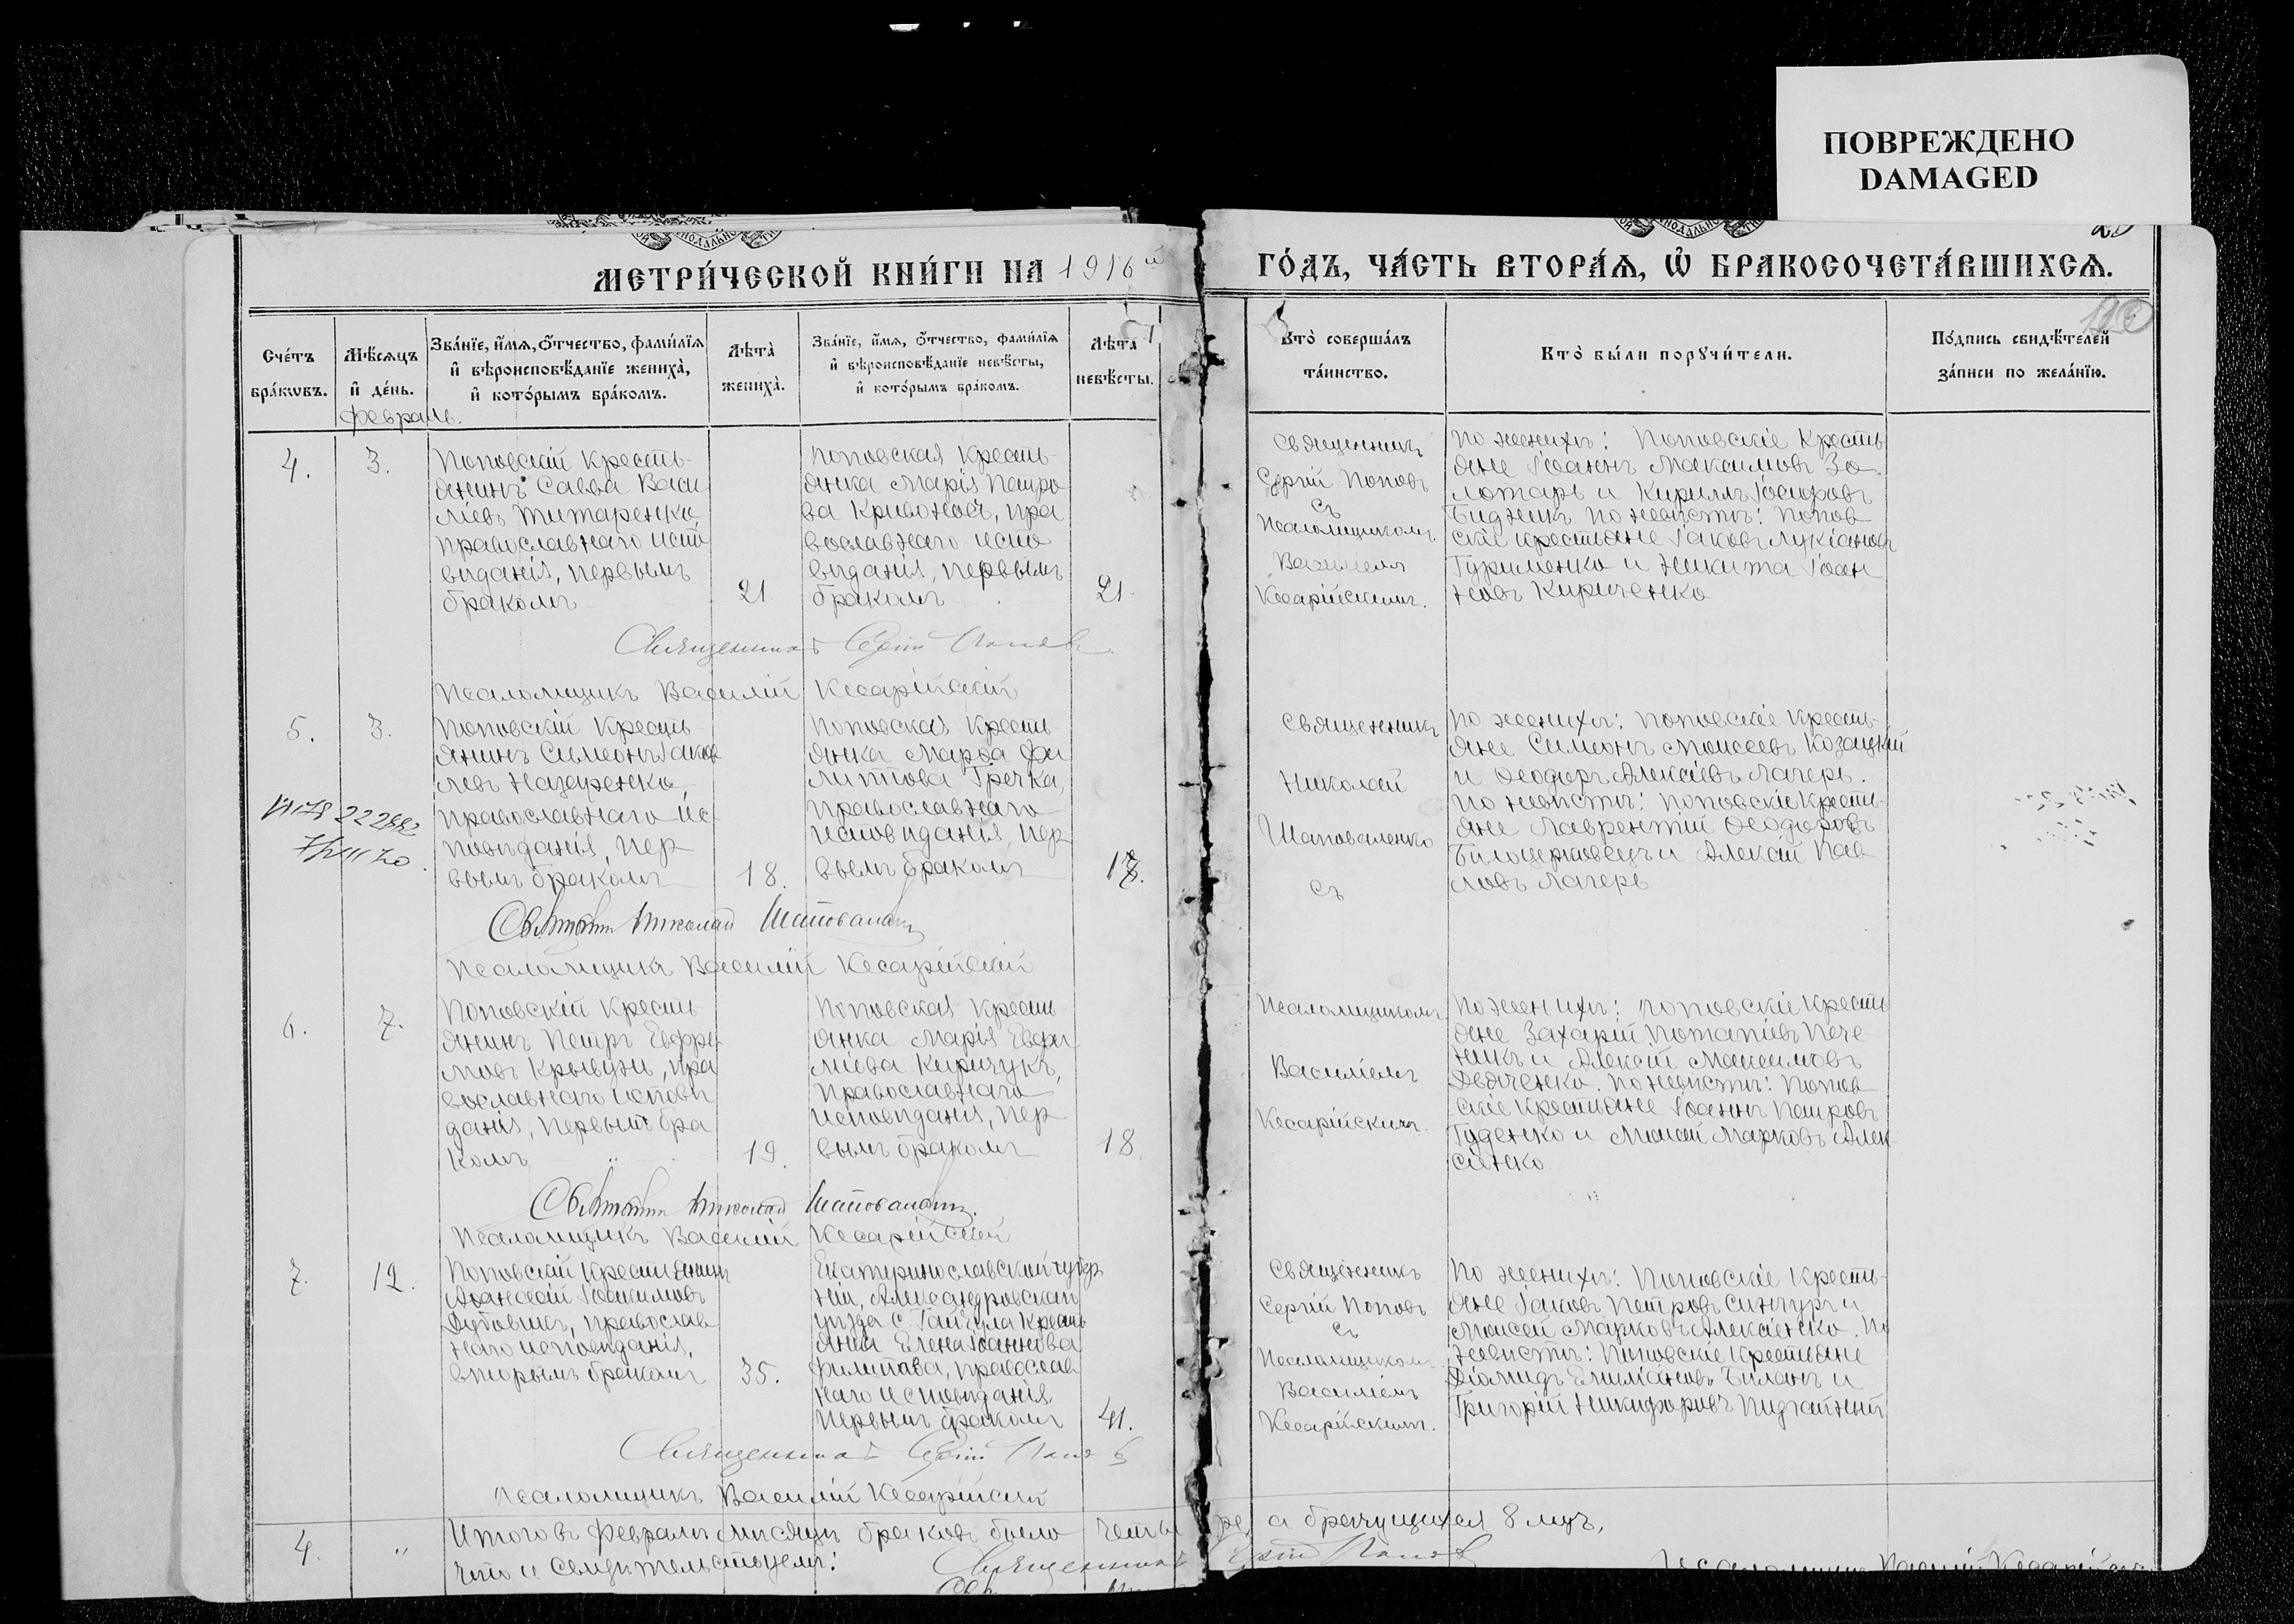 ПОВРЕЖДЕНО
DAMAGED
МЕТРИ́ЧЕСКОЙ КНИ́ГИ НА 1916 й
ГО́ДЪ, ЧА́СТЬ ВТОРА́Ѧ, Ѡ БРАКОСОЧЕТА́ВШИХСѦ.
Сче́тъ бра́кѡвъ.
Мѣ́сѧцъ и҆ де́нь.
Зва́нїе, и҆́мѧ, ѻ҆́тчество, фами́лїѧ
и҆ вѣроисповѣ́данїе жениха̀,
и҆ кото́рымъ бра́комъ.
Лѣта̀ жениха̀.
Зва́нїе, и҆́мѧ, ѻ҆́тчество, фами́лїѧ
и҆ вѣроисповѣ́данїе невѣ́сты,
и҆ кото́рымъ бра́комъ.
Лѣта̀ невѣ́сты.
Кто̀ соверша́лъ
та́инство.
Кто̀ бы́ли порꙋчи́тели.
По́дпись свидѣ́телей
за́писи по жела́нїю.
Февраль.
4.
3.
Поповскій кресть-
янинъ Савва Васи
ліевъ Титаренко,
православнаго испо
вѣданія, первымъ
бракомъ
21
Поповская кресть-
янка Марія Петро
ва Кривоносъ, пра
вославнаго испо
вѣданія, первымъ
бракомъ
21
Священникъ
Сергій Поповъ
съ
Псаломщикомъ
Василіемъ
Кесарійскимъ.
По женихѣ: Поповскіе кресть
яне Іоаннъ Максимовъ Зо
лотарь и Кириллъ Іосифовъ
Бидникъ. По невѣстѣ: Попов
скіе крестьяне Іаковъ Лукіановъ
Гурименко и Никита Іоан
новъ Кириченко
Священникъ Сергій Поповъ
Псаломщикъ Василій Кесарійскій
5.
3.
Поповскій кресть-
янинъ Симеонъ Іаков
левъ Назаренко,
православнаго ис
повѣданія, пер
вымъ бракомъ
18.
Поповская кресть-
янка Марѳа Фи
липпова Гречка,
православнаго
исповѣданія, пер
вымъ бракомъ
Священникъ
Николай
Шаповаленко
съ
По женихѣ: Поповскіе кресть-
яне Симеонъ Моисеевъ Козацкій
и Ѳеодоръ Алексіевъ Лагерь.
По невѣстѣ: Поповскіе кресть-
яне Лаврентій Ѳеодоровъ
Билоцерковецъ и Алексій Пав
ловъ Лагерь
Николай
Псаломщикъ Василій Кесарійскій
6.
7.
Поповскій кресть-
янинъ Петръ Евфре
мовъ Крывунъ, пра
вославнаго исповѣ
данія, первымъ бра
комъ
19.
Поповская кресть
янка Марія Евфи
міева Киричукъ,
православнаго
исповѣданія, пер
вымъ бракомъ
18.
Псаломщикомъ
Василіемъ
Кесарійскимъ.
По женихѣ: Поповскіе кресть
яне Захарій Потапіевъ Пече-
никъ и Алексій Максимовъ
Дьяченко. По невѣстѣ: Попов
скіе крестьяне Іоаннъ Петровъ
Гуденко и Моисей Марковъ Алек-
сіенко
Николай
Псаломщикъ Василій Кесарійскій
7.
12.
Поповскій крестьянинъ
Аѳанасій Іоакимовъ
Дубовикъ, православ
наго исповѣданія,
вторымъ бракомъ
35.
Екатеринославской губер
ніи, Александровскаго
уѣзда с. Гайчула кресть
янка Елена Іоаннова
Филипова, православ
наго исповѣданія
первымъ бракомъ
41.
Священникъ
Сергій Поповъ
съ
Псаломщикомъ
Василіемъ
Кесарійскимъ.
По женихѣ: Поповскіе кресть-
яне Іаковъ Петровъ Синчугъ и
Моисей Марковъ Алексіенко. По
невѣстѣ: Поповскіе крестьяне
Діомидъ Емиліановъ Биланъ и
Григорій Никифоровъ Пидгайный
Священникъ Сергій Поповъ
Псаломщикъ Василій Кесарійскій
4.
"
Итого въ февралѣ мѣсяцѣ браковъ было четыре, а брачущихся 8 лицъ,
что и свидѣтельствуемъ: Священникъ Сергій Поповъ
Псаломщикъ Василій Кесарійскій